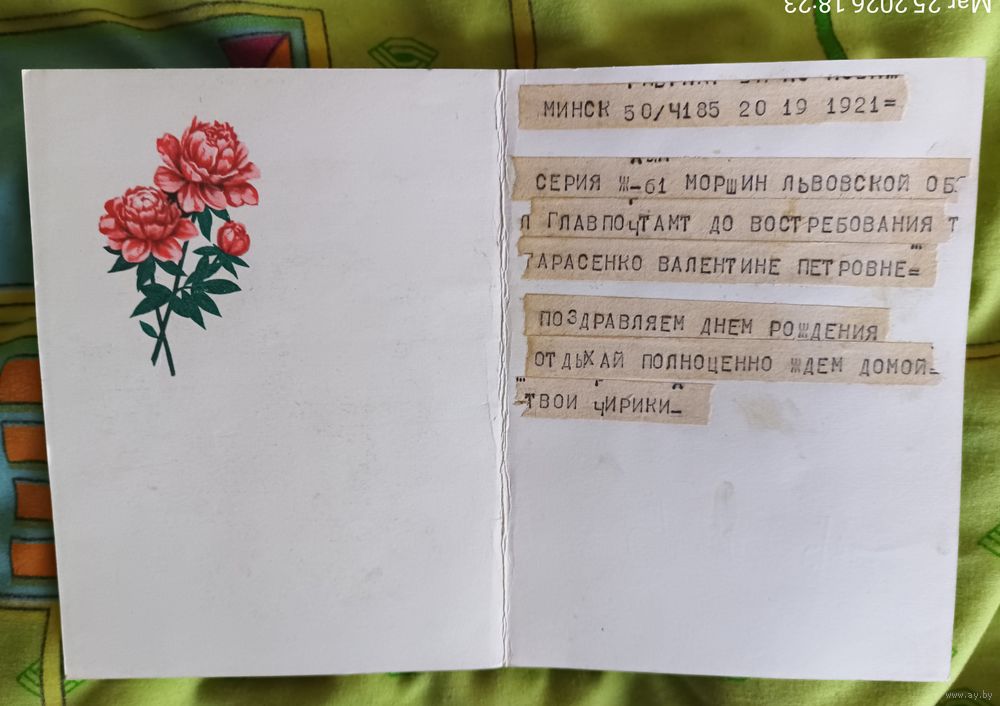 Mar 25 2026 18:23
МИНСК 50/Ч185 20 19 1921=
СЕРИЯ Ж-61 МОРШИН ЛЬВОВСКОЙ ОБ
Л ГЛАВПОЧТАМТ ДО ВОСТРЕБОВАНИЯ Т
ТАРАСЕНКО ВАЛЕНТИНЕ ПЕТРОВНЕ=
ПОЗДРАВЛЯЕМ ДНЕМ РОЖДЕНИЯ
ОТДЫХАЙ ПОЛНОЦЕННО ЖДЕМ ДОМОЙ-
-ТВОИ ЧИРИКИ-
www.ay.by